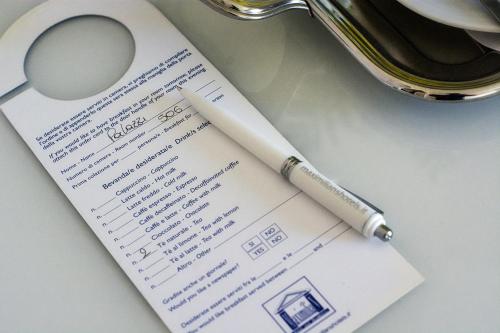 Se desiderate essere serviti in camera, vi preghiamo di compilare
l'ordine di appendere questa sera stessa alla maniglia della porta
della vostra camera.
If you would like to have breakfast in your room tomorrow, please
attach this order card to the door handle of your room this evening
Nome - Name Palazzi
Numero di camera - Room number 506
Prima colazione per persona/e - Breakfast for
Bevanda/e desiderata/e Drink/s
n. Cappuccino - Cappuccino
n. Latte caldo - Hot milk
n. Latte freddo - Cold milk
n. Caffè espresso - Espresso
n. Caffè decaffeinato - Decaffeinated coffee
n. Caffè e latte - Coffee with milk
n. Cioccolato - Chocolate
n. 2 Tè naturale - Tea
n. Tè al limone - Tea with lemon
n. Tè al latte - Tea with milk
Altro - Other
Gradite anche un giornale? SI NO
Would you like a newspaper? YES NO
Desiderate essere serviti fra le e le
would like breakfast served between and